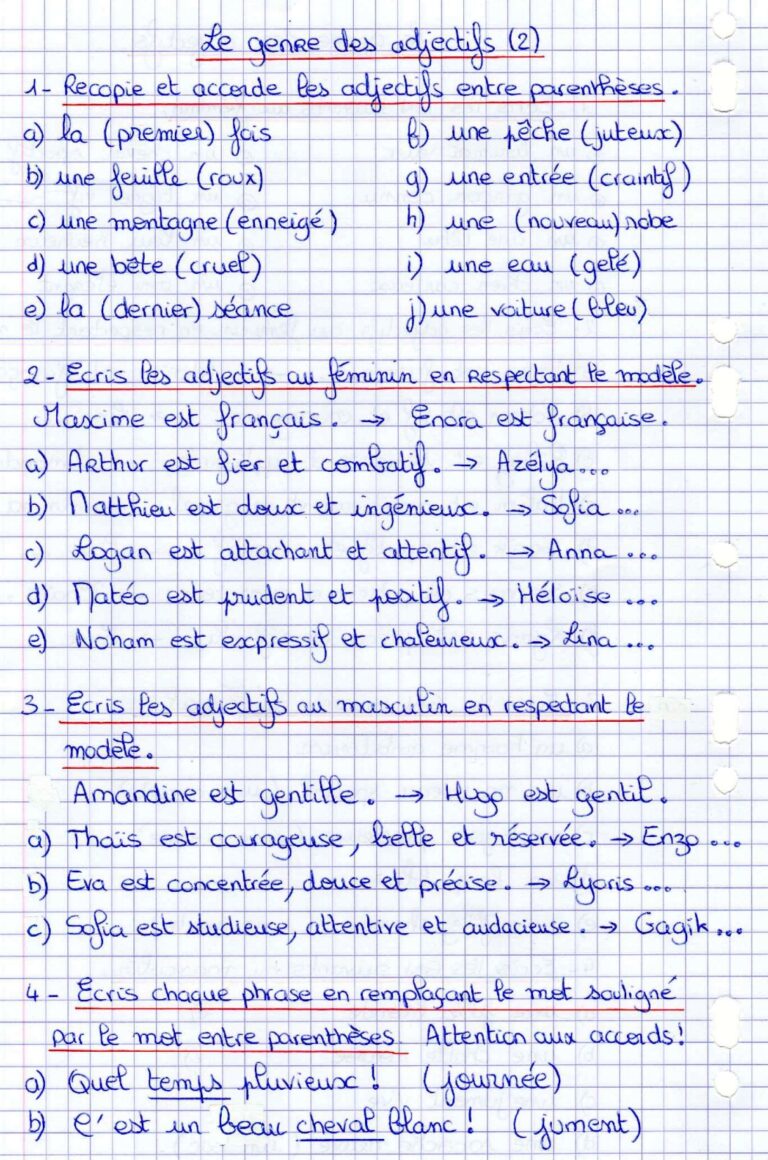 Le genre des adjectifs (2)
1- Recopie et accorde les adjectifs entre parenthèses.
a) la (premier) fois
b) une feuille (roux)
c) une montagne (enneigé)
d) une bête (cruel)
e) la (dernier) séance
f) une pêche (juteux)
g) une entrée (craintif)
h) une (nouveau) robe
i) une eau (gelé)
j) une voiture (bleu)
2- Ecris les adjectifs au féminin en respectant le modèle.
Maxime est français. → Enora est française.
a) Arthur est fier et combatif. → Azélya...
b) Matthieu est doux et ingénieux. → Sofia ...
c) Logan est attachant et attentif. → Anna ...
d) Matéo est prudent et positif. → Héloïse ...
e) Noham est expressif et chaleureux. → Lina ...
3- Ecris les adjectifs au masculin en respectant le
modèle.
Amandine est gentille. → Hugo est gentil.
a) Thaïs est courageuse, belle et réservée. → Enzo ...
b) Eva est concentrée, douce et précise. → Lyoris ...
c) Sofia est studieuse, attentive et audacieuse. → Gagik...
4- Ecris chaque phrase en remplaçant le mot souligné
par le mot entre parenthèses. Attention aux accords!
a) Quel temps pluvieux ! (journée)
b) C'est un beau cheval blanc ! (jument)